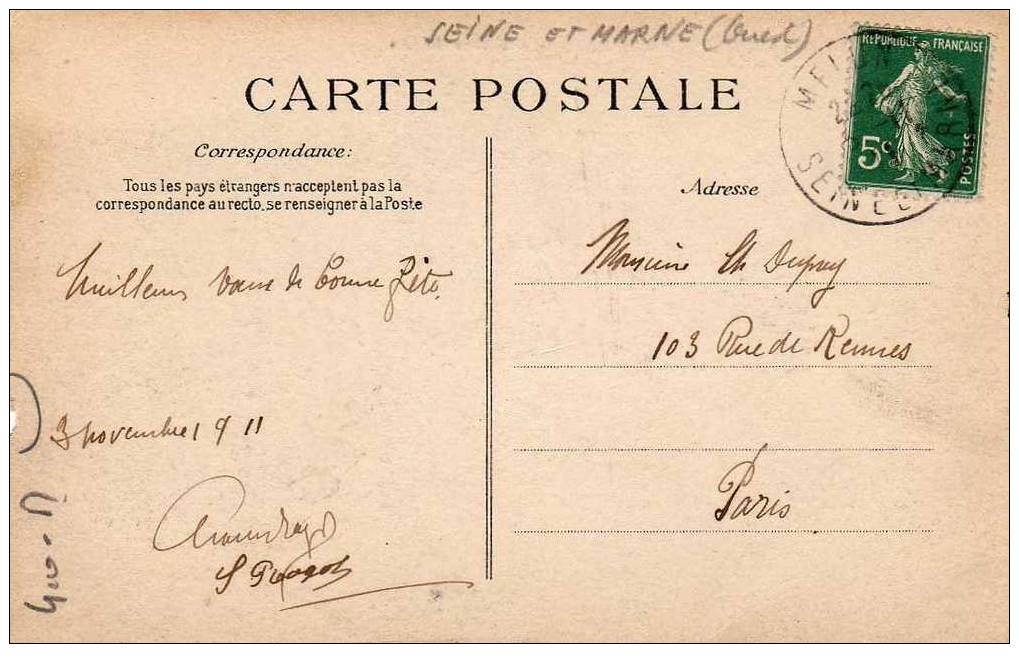 SEINE ET MARNE (Ouest)
CARTE POSTALE
RÉPUBLIQUE FRANÇAISE
5c
POSTES
MELUN
SEINE-ET-MARNE
Correspondance:
Tous les pays étrangers n'acceptent pas la
correspondance au recto, se renseigner à la Poste
Adresse
Meilleurs vœux de bonne fête.
3 novembre 1911
Monsieur Ch Dupuy
103 Rue de Rennes
Paris